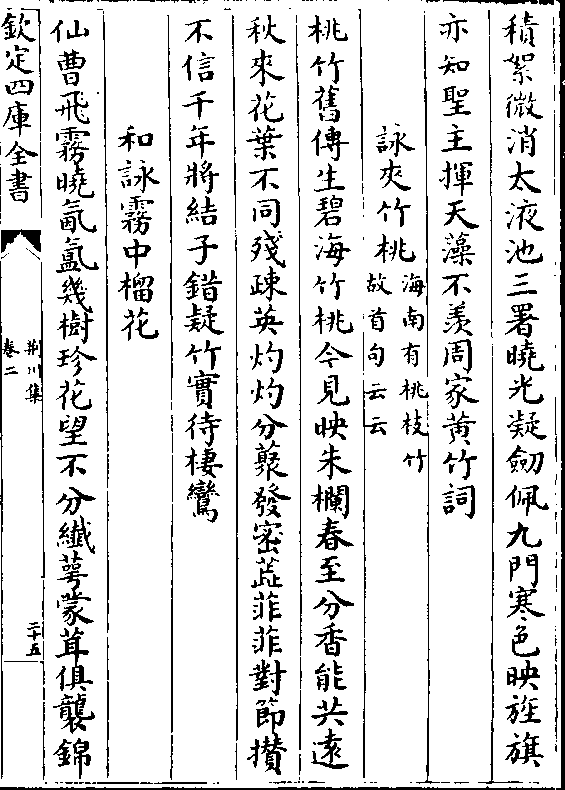 積絮微消太液池三署曉光凝劒佩九門寒色映旌旗
亦知聖主揮天藻不羨周家黄竹詞
詠夾竹桃海南有桃枝竹
故首句云云
桃竹舊傳生碧海竹桃今見映朱欄春至分香能共逺
秋來花葉不同殘疎英灼灼分蘂發密蕋菲菲對節攅
不信千年將結子錯疑竹實待棲鸞
和詠霧中榴花
仙曹飛霧曉氤氲幾樹珍花望不分纖萼蒙茸俱襲錦
欽定四庫全書
荆川集
卷二
二十五